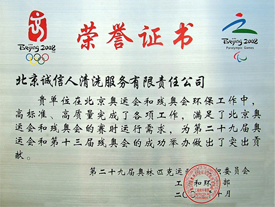 Beijing 2008
荣誉证书
Beijing 2008
Paralympic Games
北京诚信人清洗服务有限责任公司
贵单位在北京奥运会和残奥会环保工作中,
高标准、高质量完成了各项工作,满足了北京奥
运会和残奥会的赛时运行需求,为第二十九届奥
运会和第十三届残奥会的成功举办做出了突出贡
献。
第二十九届奥林匹克运 委员会
工 和环 部